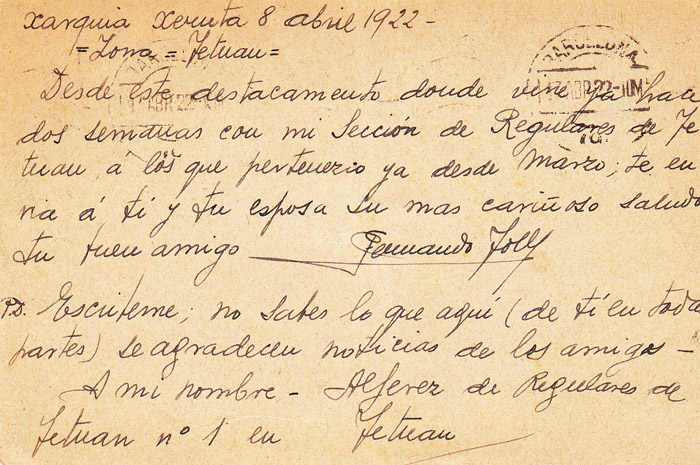 Xarquia Xeruta 8 abril 1922-
=Zona = Tetuan=
BARCELONA
ABR 22
Desde este destacamento donde vine ya hace
dos semanas con mi Sección de Regulares de Te
tuan á los que pertenezco ya desde Marzo, te en
via á tí y tu esposa su mas cariñoso saludo
tu buen amigo Fernando Jolly
PD. Escribeme, no sabes lo que aquí (de tí en todas
partes) se agradecen noticias de los amigos -
A mi nombre - Alferez de Regulares de
Tetuan nº 1 en Tetuan